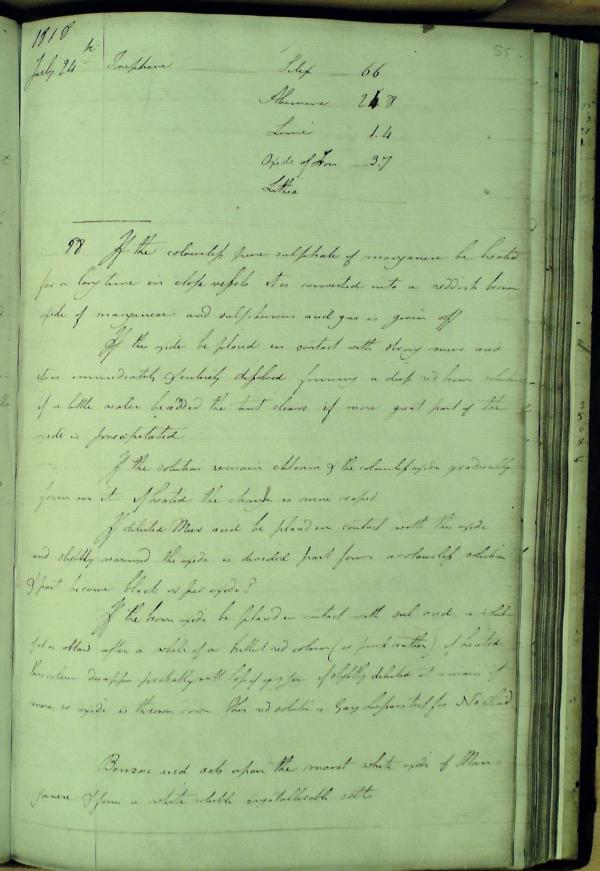 1818
55
July 24th Triphane Silex 66
Alumine 24 8
Lime 1.4
Oxide of Iron 3.7
Lithia
98 If the colourless pure sulphate of manganese be heated
for a long time in close vessels it is converted into a reddish brown
oxide of manganese and sulphurous acid gas is given off
If this oxide be placed in contact with strong muri acid
it is immediately & entirely dissolved forming a deep red brown solution
if a little water be added the tint clears if more great part of the
oxide is precipitated
If the solution remain chlorine & the colourless oxide gradually
form in it if heated the change is more rapid
If diluted Muri acid be placed in contact with this oxide
and slightly warmed the oxide is divided part forms a colourless solution
& part become black or per oxide?
If the brown oxide be placed in contact with sul acid a solution
is obtained after a while of a brilliant red colour (or pink rather) if heated
this colour disappears probably with loss of oxygen if slightly diluted it remains if
more so oxide is thrown down this red solution is Gay Lussacs test for
Benzoic acid acts upon the moist white oxide of Man-
ganese & forms a white soluble crystallisable salt